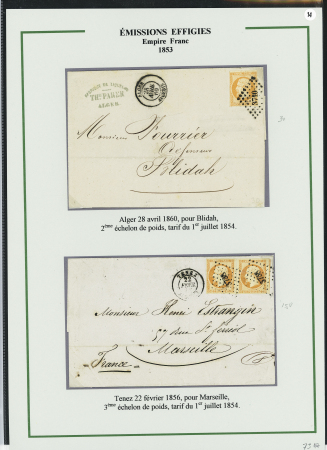 34
ÉMISSIONS EFFIGIES
Empire Franc
1853
ALGER
Monsieur Fourrier
Défenseur
Blidah
Alger 28 avril 1860, pour Blidah,
2ème échelon de poids, tarif du 1er juillet 1854.
TENEZ
22
Monsieur Henri Estrangin
57 rue St Ferréol
Marseille
France
Tenez 22 février 1856, pour Marseille,
3ème échelon de poids, tarif du 1er juillet 1854.